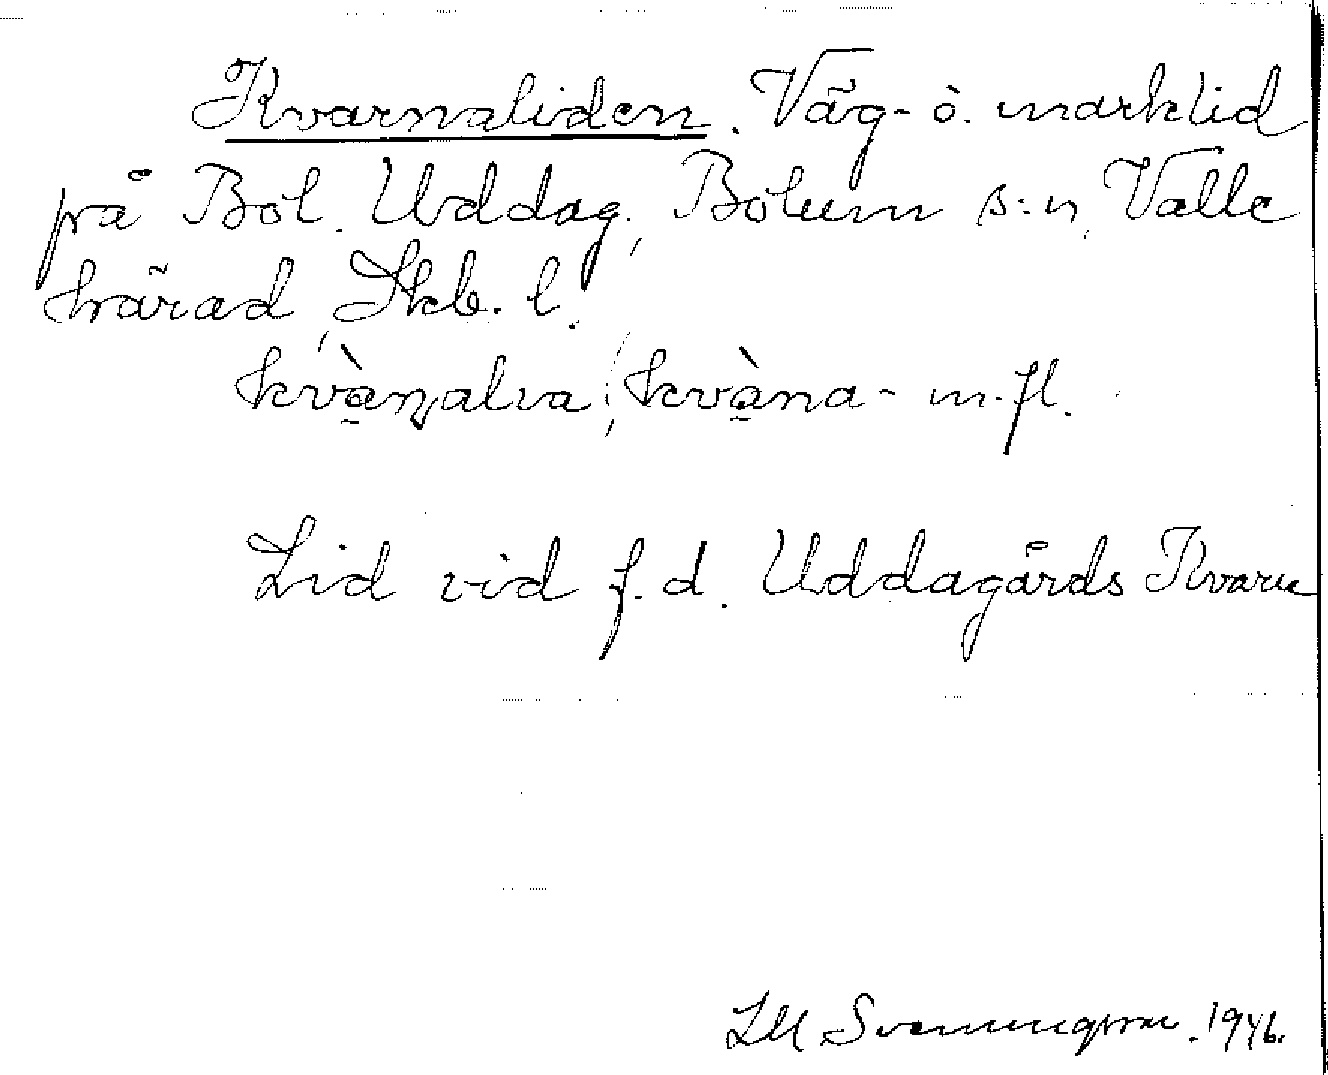 Kvarnaliden. Väg- o. marklid
på Bol. Uddag., Bolum s:n, Valle
härad, Skb. l.
kvàṇalva; kvàna- m.fl.
Lid vid f.d. Uddagårds Kvarn
1946.